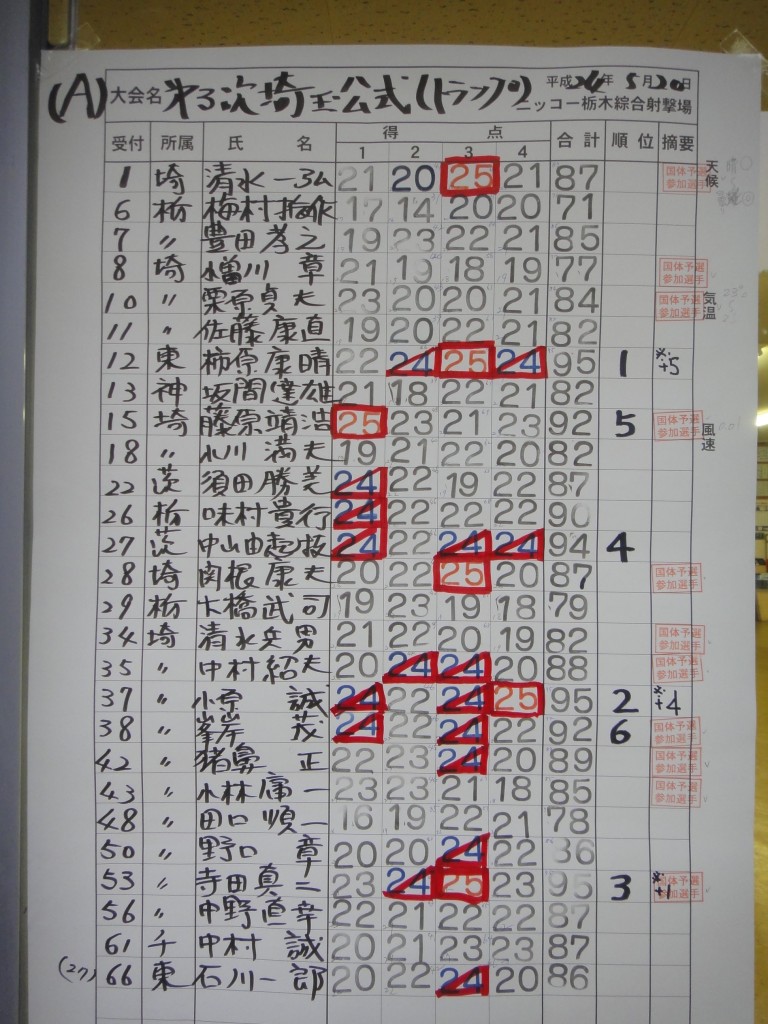 (A) 大会名 第3次埼玉公式(トラップ) 平成24年5月20日
ニッコー栃木綜合射撃場
受付 所属 氏 名 得 点 合計 順位 摘要
1 2 3 4
1 埼 清水一弘 21 20 25 21 87 国体予選 参加選手
6 栃 梅村 17 14 20 20 71
7 〃 豊田孝之 19 23 22 21 85
8 埼 小曽川 章 21 19 18 19 77 国体予選 参加選手
10 〃 栗原貞夫 23 20 20 21 84 国体予選 参加選手
11 〃 佐藤康直 19 20 22 21 82
12 東 柿原康晴 22 24 25 24 95 1 ※+5
13 神 坂間達雄 21 18 22 21 82
15 埼 藤原靖浩 25 23 21 23 92 5 国体予選 参加選手
18 〃 小川満夫 19 21 22 20 82
22 茨 須田勝美 24 22 19 22 87
26 栃 味村貴行 24 22 22 22 90
27 茨 中山由起枝 24 22 24 24 94 4
28 埼 関根康夫 20 22 25 20 87 国体予選 参加選手
29 栃 大橋武司 19 23 19 18 79
34 埼 清水兵男 21 22 20 19 82 国体予選 参加選手
35 〃 中村紹夫 20 24 24 20 88 国体予選 参加選手
37 〃 小奈 誠 24 22 24 25 95 2 ※+4
38 〃 峯岸 茂 24 22 24 22 92 6 国体予選 参加選手
42 〃 猪鼻 正 22 23 24 20 89 国体予選 参加選手
43 〃 小林庸一 23 23 21 18 85 国体予選 参加選手
48 〃 田口順一 16 19 22 21 78
50 〃 野口 章 20 20 24 22 86
53 〃 寺田真二 23 24 25 23 95 3 ※+1 国体予選 参加選手
56 〃 中野直幸 22 21 22 22 87
61 千 中村 誠 20 21 23 23 87
(27) 66 東 石川一郎 20 22 24 20 86
天候
気温
風速